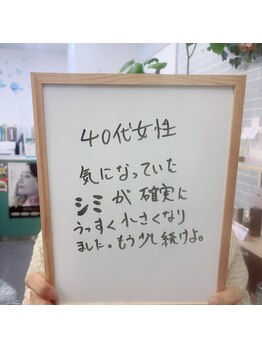 40代女性
気になっていた
シミが確実に
うっすく小さくなり
ました。もう少し続けよ。